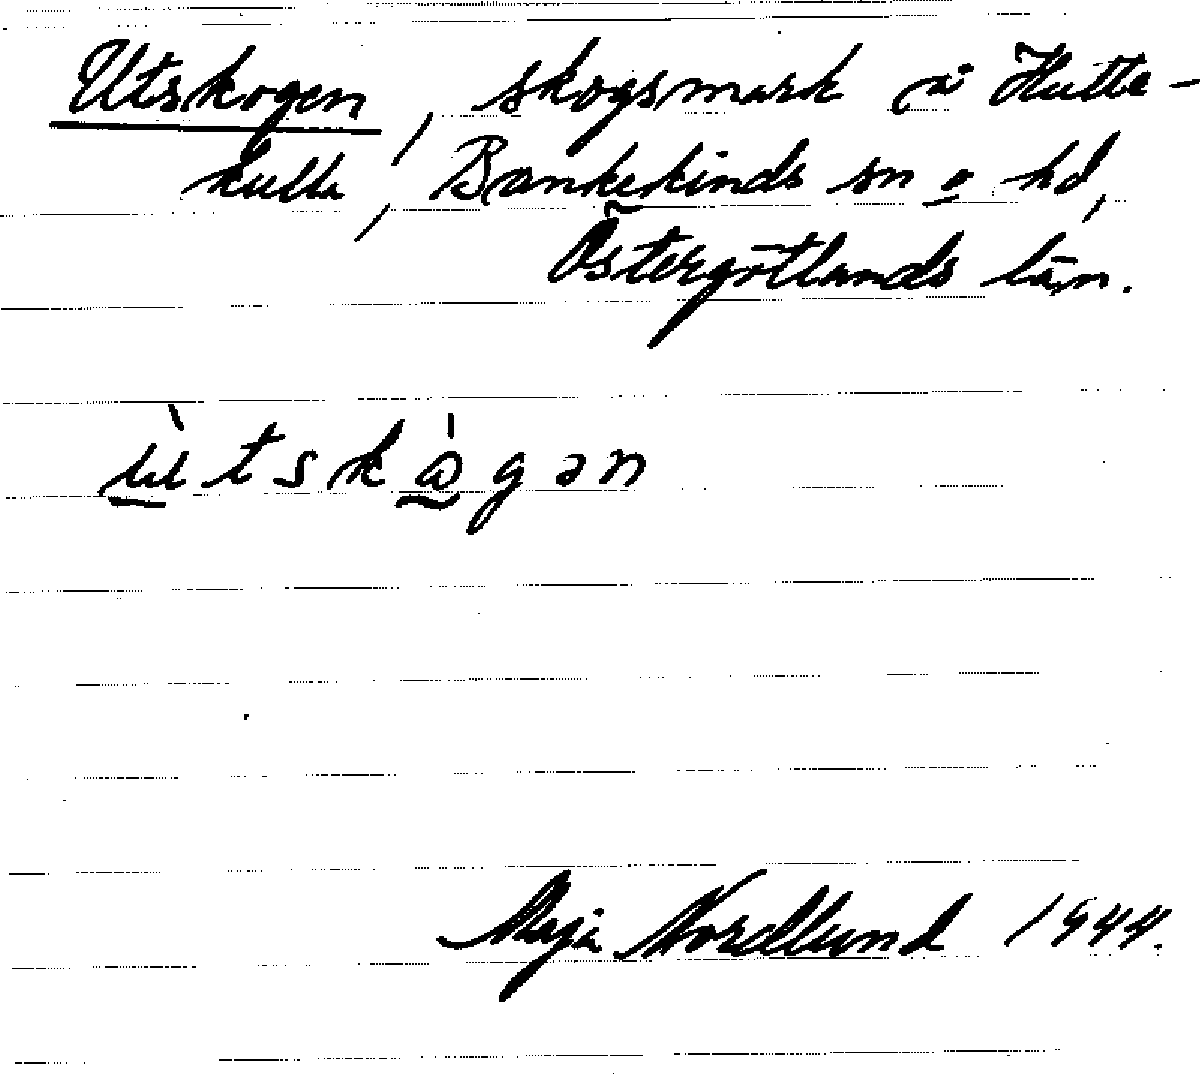 Utskogen, skogsmark å Hutte-
kulla, Bankekinds sn o hd,
Östergötlands län.
ùtskògən
Maja Nordlund 1944.